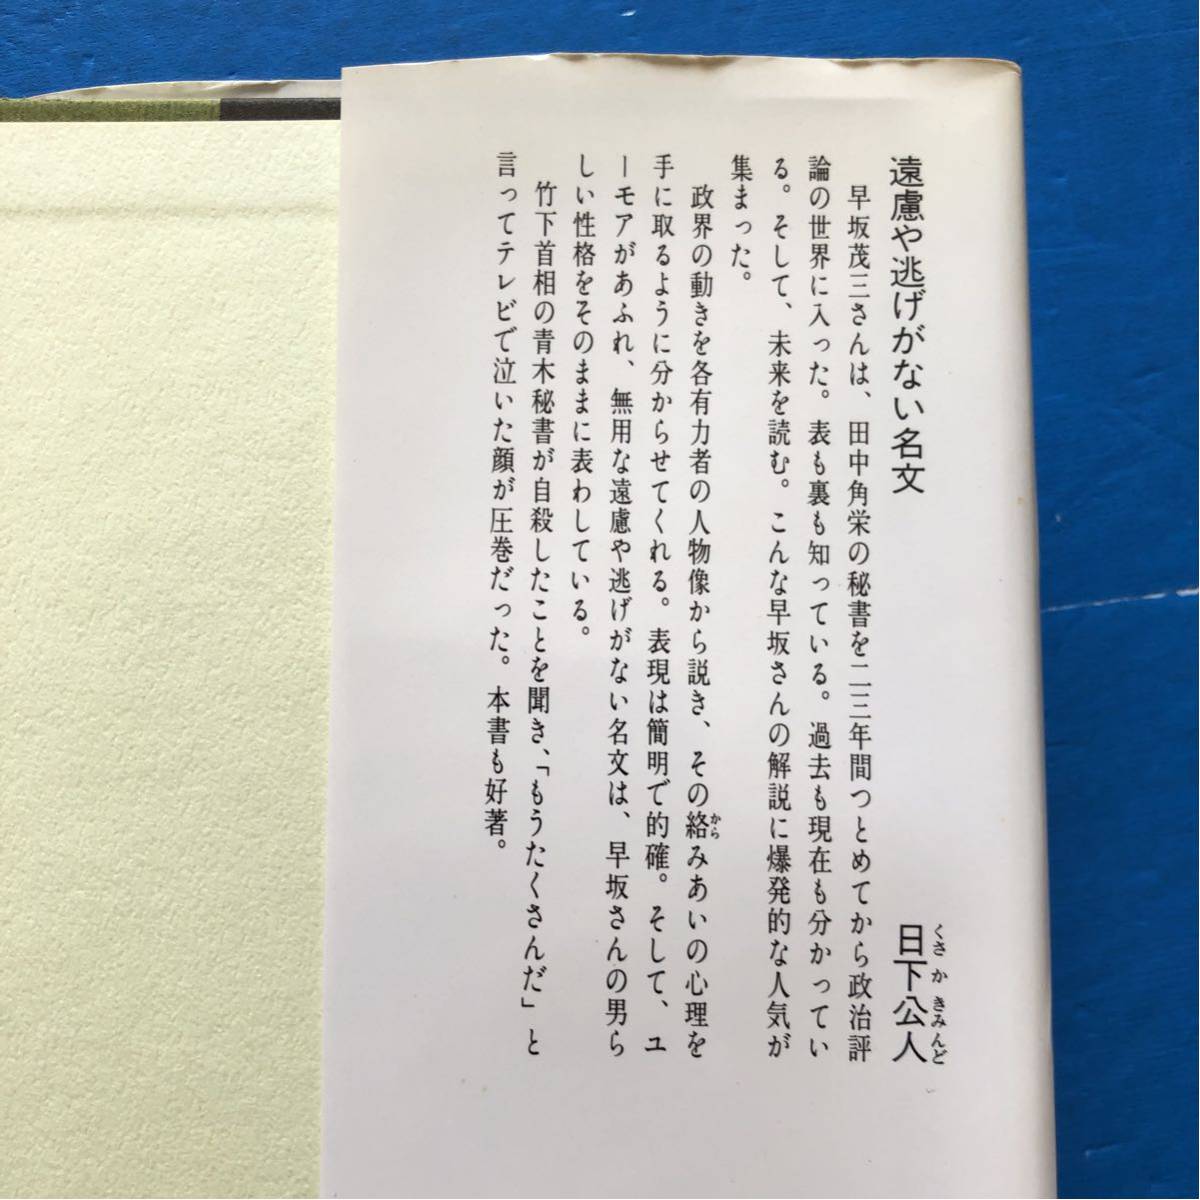 遠慮や逃げがない名文
日下公人
くさかきみんど
早坂茂三さんは、田中角栄の秘書を二三年間つとめてから政治評
論の世界に入った。表も裏も知っている。過去も現在も分かってい
る。そして、未来を読む。こんな早坂さんの解説に爆発的な人気が
集まった。
政界の動きを各有力者の人物像から説き、その絡みあいの心理を
から
手に取るように分からせてくれる。表現は簡明で的確。そして、ユ
ーモアがあふれ、無用な遠慮や逃げがない名文は、早坂さんの男ら
しい性格をそのままに表わしている。
竹下首相の青木秘書が自殺したことを聞き、「もうたくさんだ」と
言ってテレビで泣いた顔が圧巻だった。本書も好著。